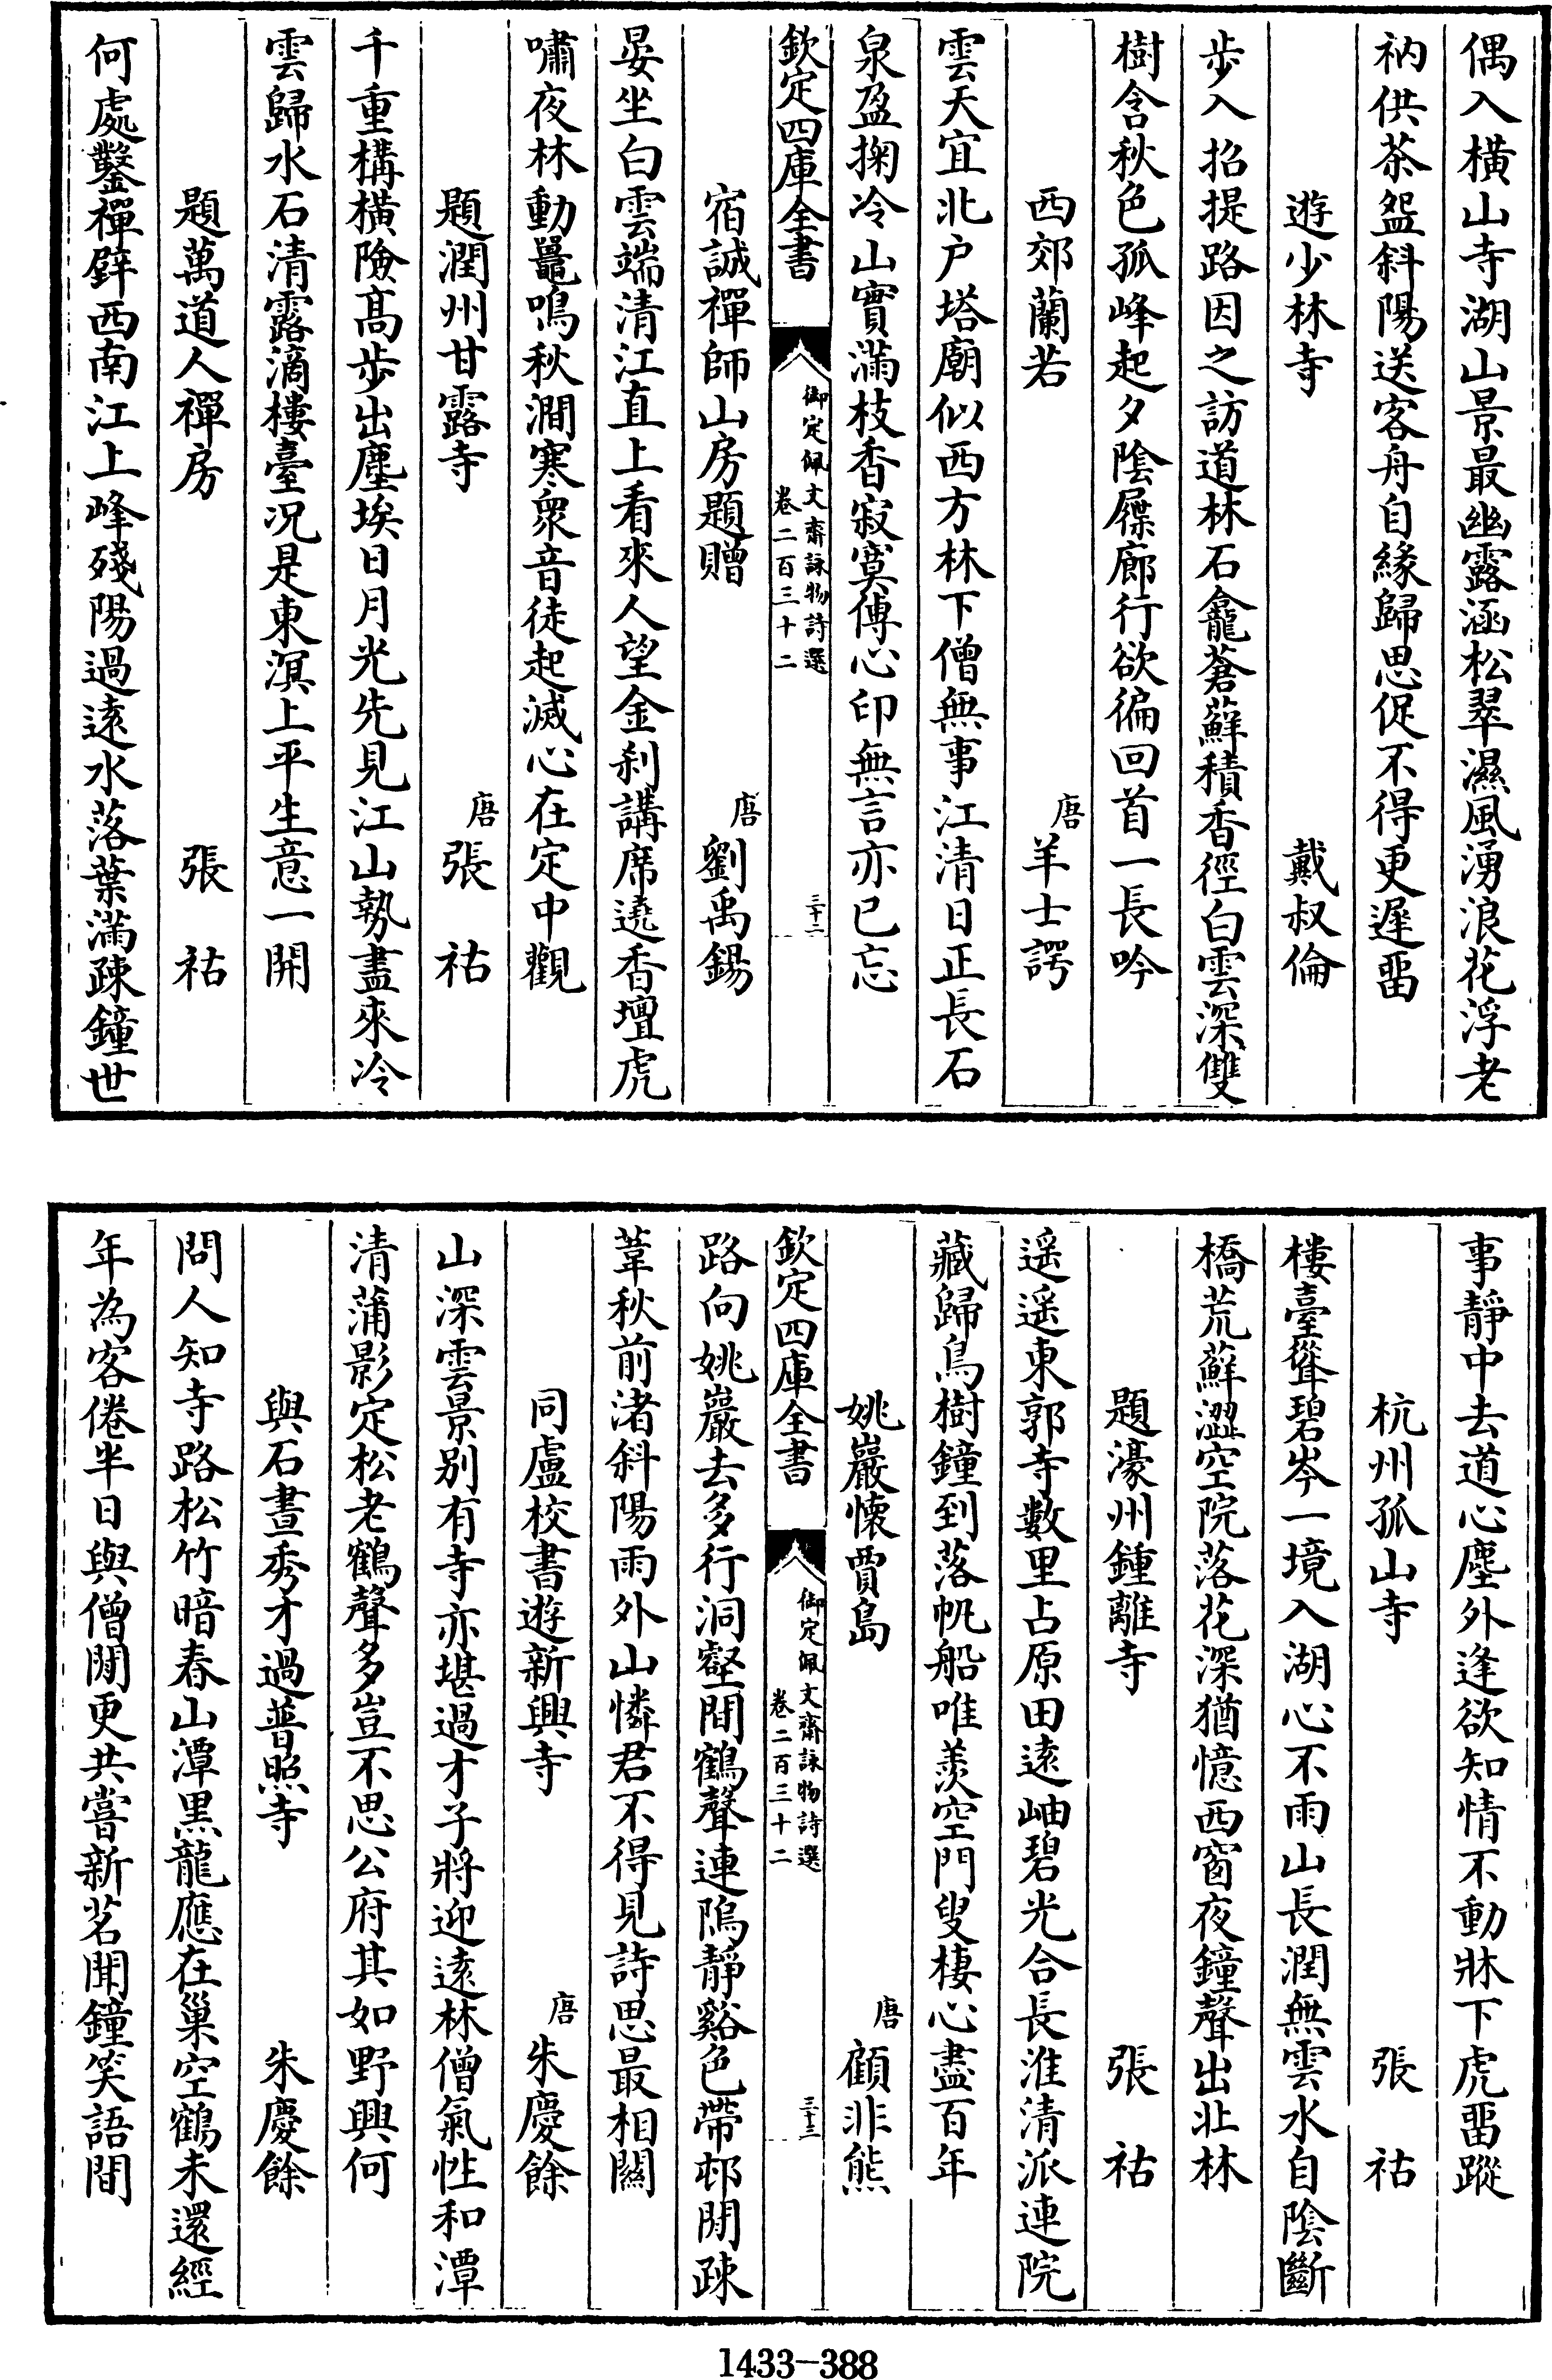 偶入橫山寺湖山景最幽露涵松翠濕風湧浪花浮老
衲供茶盌斜陽送客舟自緣歸思促不得更遲畱
遊少林寺　戴叔倫
步入招提路因之訪道林石龕蒼蘚積香徑白雲深雙
樹含秋色孤峰起夕陰屧廊行欲徧回首一長吟
西郊蘭若　唐羊士諤
雲天宜北户塔廟似西方林下僧無事江清日正長石
泉盈掬冷山實滿枝香寂寞傳心印無言亦已忘
欽定四庫全書　御定佩文齋詠物詩選　卷二百三十二　三十二
宿誠禪師山房題贈　唐劉禹錫
晏坐白雲端清江直上看來人望金刹講席遶香壇虎
嘯夜林動鼉鳴秋澗寒衆音徒起滅心在定中觀
題潤州甘露寺　唐張祜
千重構橫險高步出塵埃日月光先見江山勢盡來冷
雲歸水石清露滴樓臺况是東溟上平生意一開
題萬道人禪房　張祜
何處鑿禪壁西南江上峰殘陽過遠水落葉滿疎鐘世
事靜中去道心塵外逢欲知情不動牀下虎畱蹤
杭州孤山寺　張祜
樓臺聳碧岑一境入湖心不雨山長潤無雲水自陰斷
橋荒蘚澀空院落花深猶憶西窗夜鐘聲出北林
題濠州鍾離寺　張祜
遥遥東郭寺數里占原田遠岫碧光合長淮清派連院
藏歸鳥樹鐘到落帆船唯羡空門叟棲心盡百年
姚巖懷賈島　唐顧非熊
欽定四庫全書　御定佩文齋詠物詩選　卷二百三十二　三十三
路向姚巖去多行洞壑間鶴聲連隖靜谿色帶邨閒疎
葦秋前渚斜陽雨外山憐君不得見詩思最相關
同盧校書遊新興寺　唐朱慶餘
山深雲景别有寺亦堪過才子將迎遠林僧氣性和潭
清蒲影定松老鶴聲多豈不思公府其如野興何
與石晝秀才過普照寺　朱慶餘
問人知寺路松竹暗春山潭黒龍應在巢空鶴未還經
年為客倦半日與僧閒更共嘗新茗聞鐘笑語間
1433-388